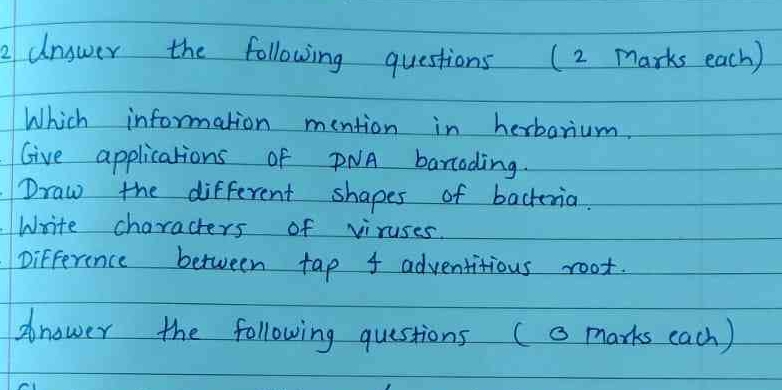 2 Answer the following questions (2 Marks each)
Which information mention in herbarium.
Give applications of DNA barcoding.
Draw the different shapes of bacteria.
Write characters of viruses.
Difference between tap & adventitious root.
Answer the following questions ( 3 Marks each)